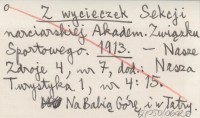 Z wycieczek Sekcji
narciarskiej Akadem. Związku
Sportowego. 1913. — Nasze
Zdroje 4, nr 7, dod: Nasza
Turystyka 1, nr 4: 15.
Na Babią Górę, i w Tatry.